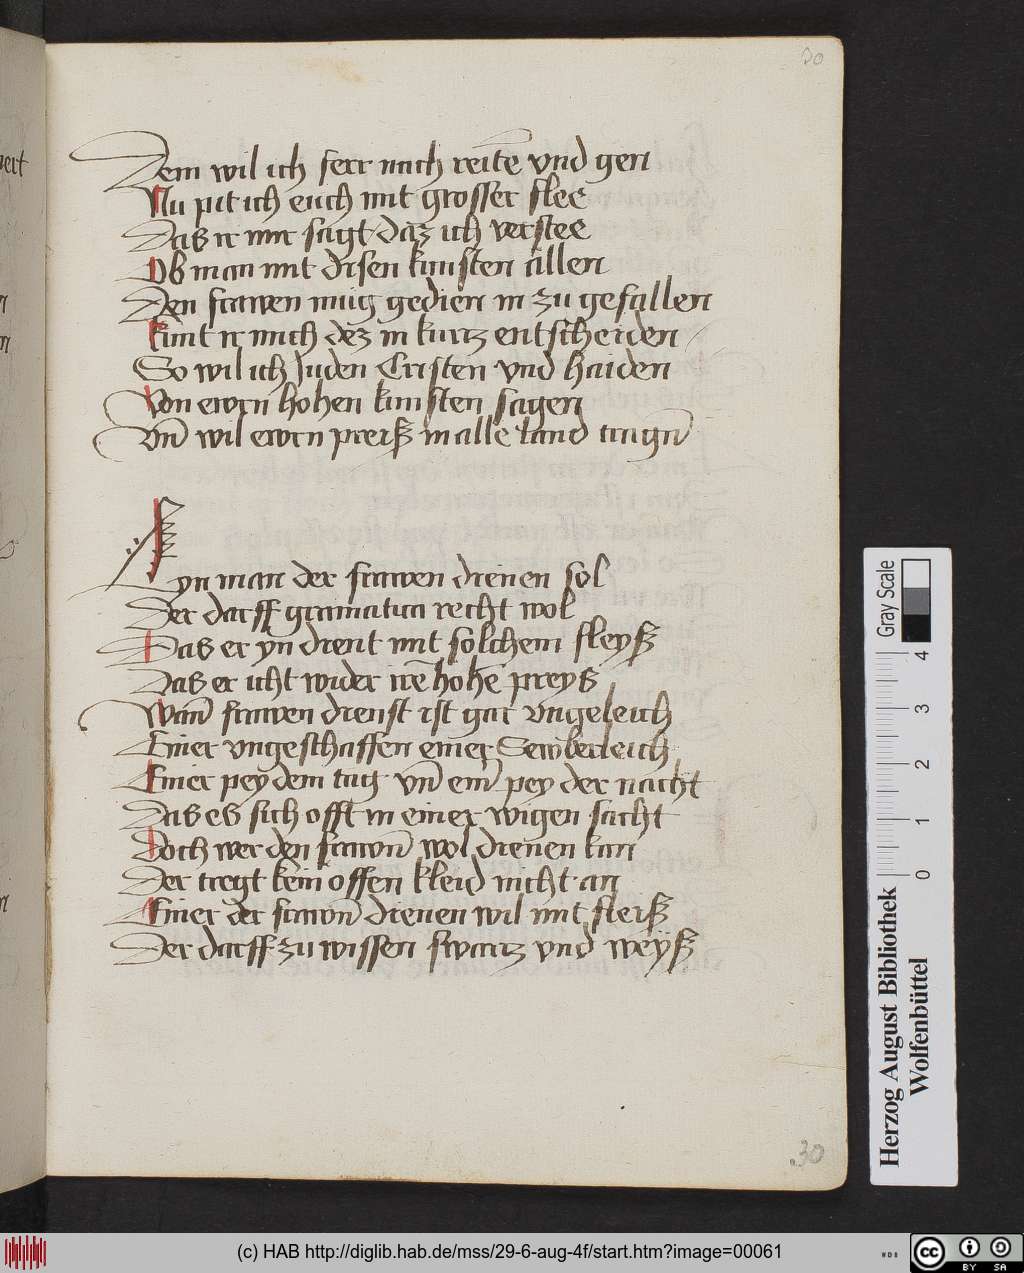 30
Dem wil ich ferr nach reitē vnd gen
Nu pit ich euch mit grosser flee
Das ir mir sagt daz ich verstee
Ob man mit disen kunsten allen
Den frawen mug gedien in zu gefallen
kunt ir mich dez in kurtz entscheiden
So wil ich Juden Cristen vnd haiden
Von ewrn hohen kunsten sagen
Vn̄ wil ewrn preiß in alle land tragn̄
Eyn man der frawen dienen sol
Der darff gramatica recht wol
Das er yn dient mit solchem fleyß
Das er icht wider irē hohē preys
Wan̄ frawen dienst ist gar vngeleich
Einer vngeschaffen einer Sewberleich
Einer pey dem tag vn̄ ein̄ pey der nacht
Das es sich offt in einer wigen sacht
Doch wer den frawn̄ wol dienen kan
Der tregt kein offen kleid nicht an
Einer der frawn̄ dienen wil mit fleiß
Der darff zu wissen swartz vnd weyß
30
Herzog August Bibliothek
Wolfenbüttel
Gray Scale
0 1 2 3 4
(c) HAB http://diglib.hab.de/mss/29-6-aug-4f/start.htm?image=00061
WDB
cc BY SA